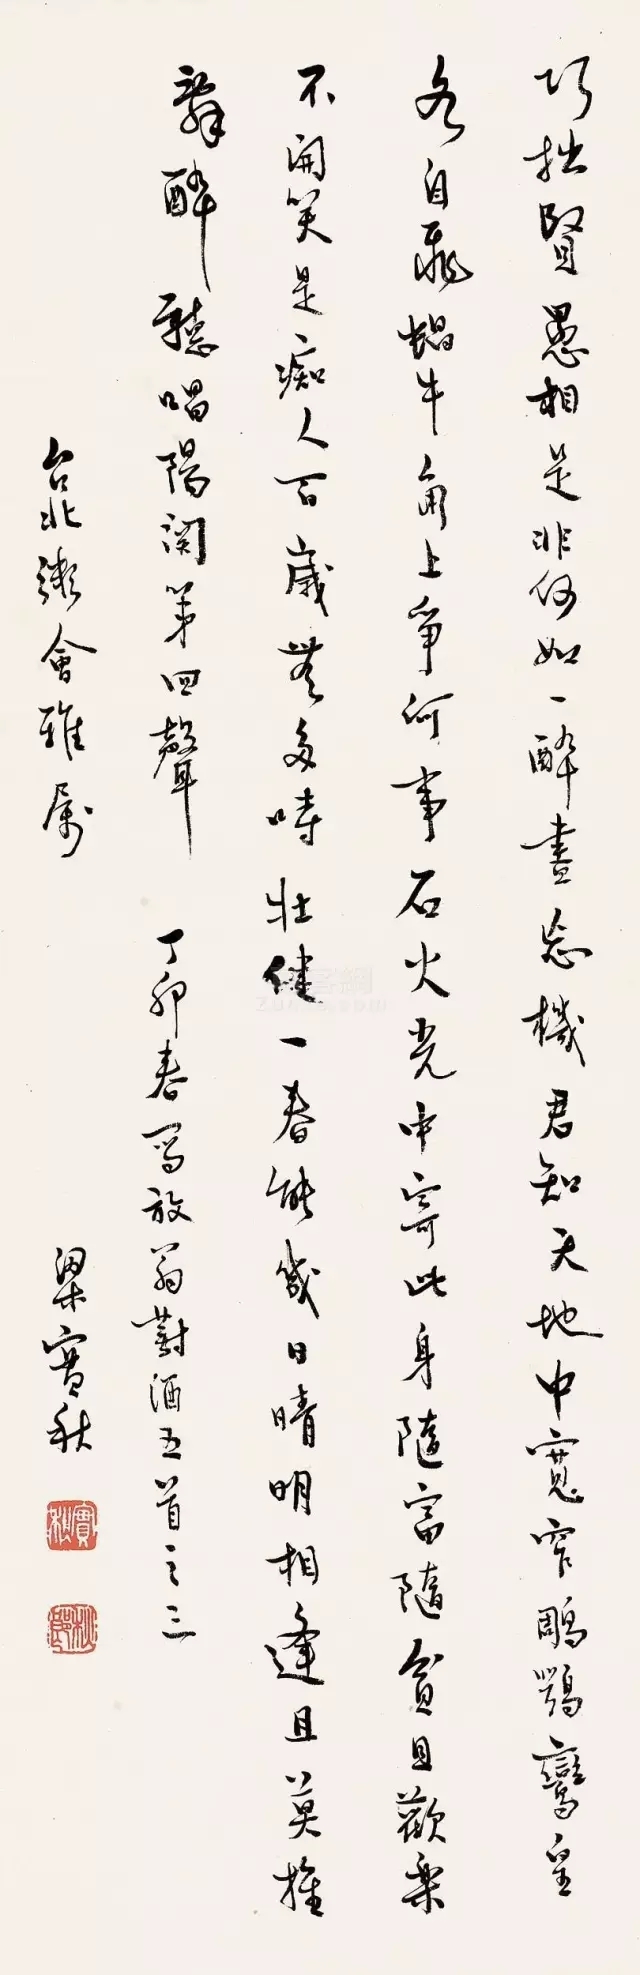 巧拙賢愚相是非何如一醉盡忘機君知天地中寬窄鵰鶚鸞皇
各自飛蝸牛角上爭何事石火光中寄此身隨富隨貧且歡樂
不開笑是癡人百歲無多時壯健一春能幾日晴明相逢且莫推
辭醉聽唱陽關第四聲
丁卯春寫放翁對酒五首之三
台北粥會雅屬
梁實秋
實秋